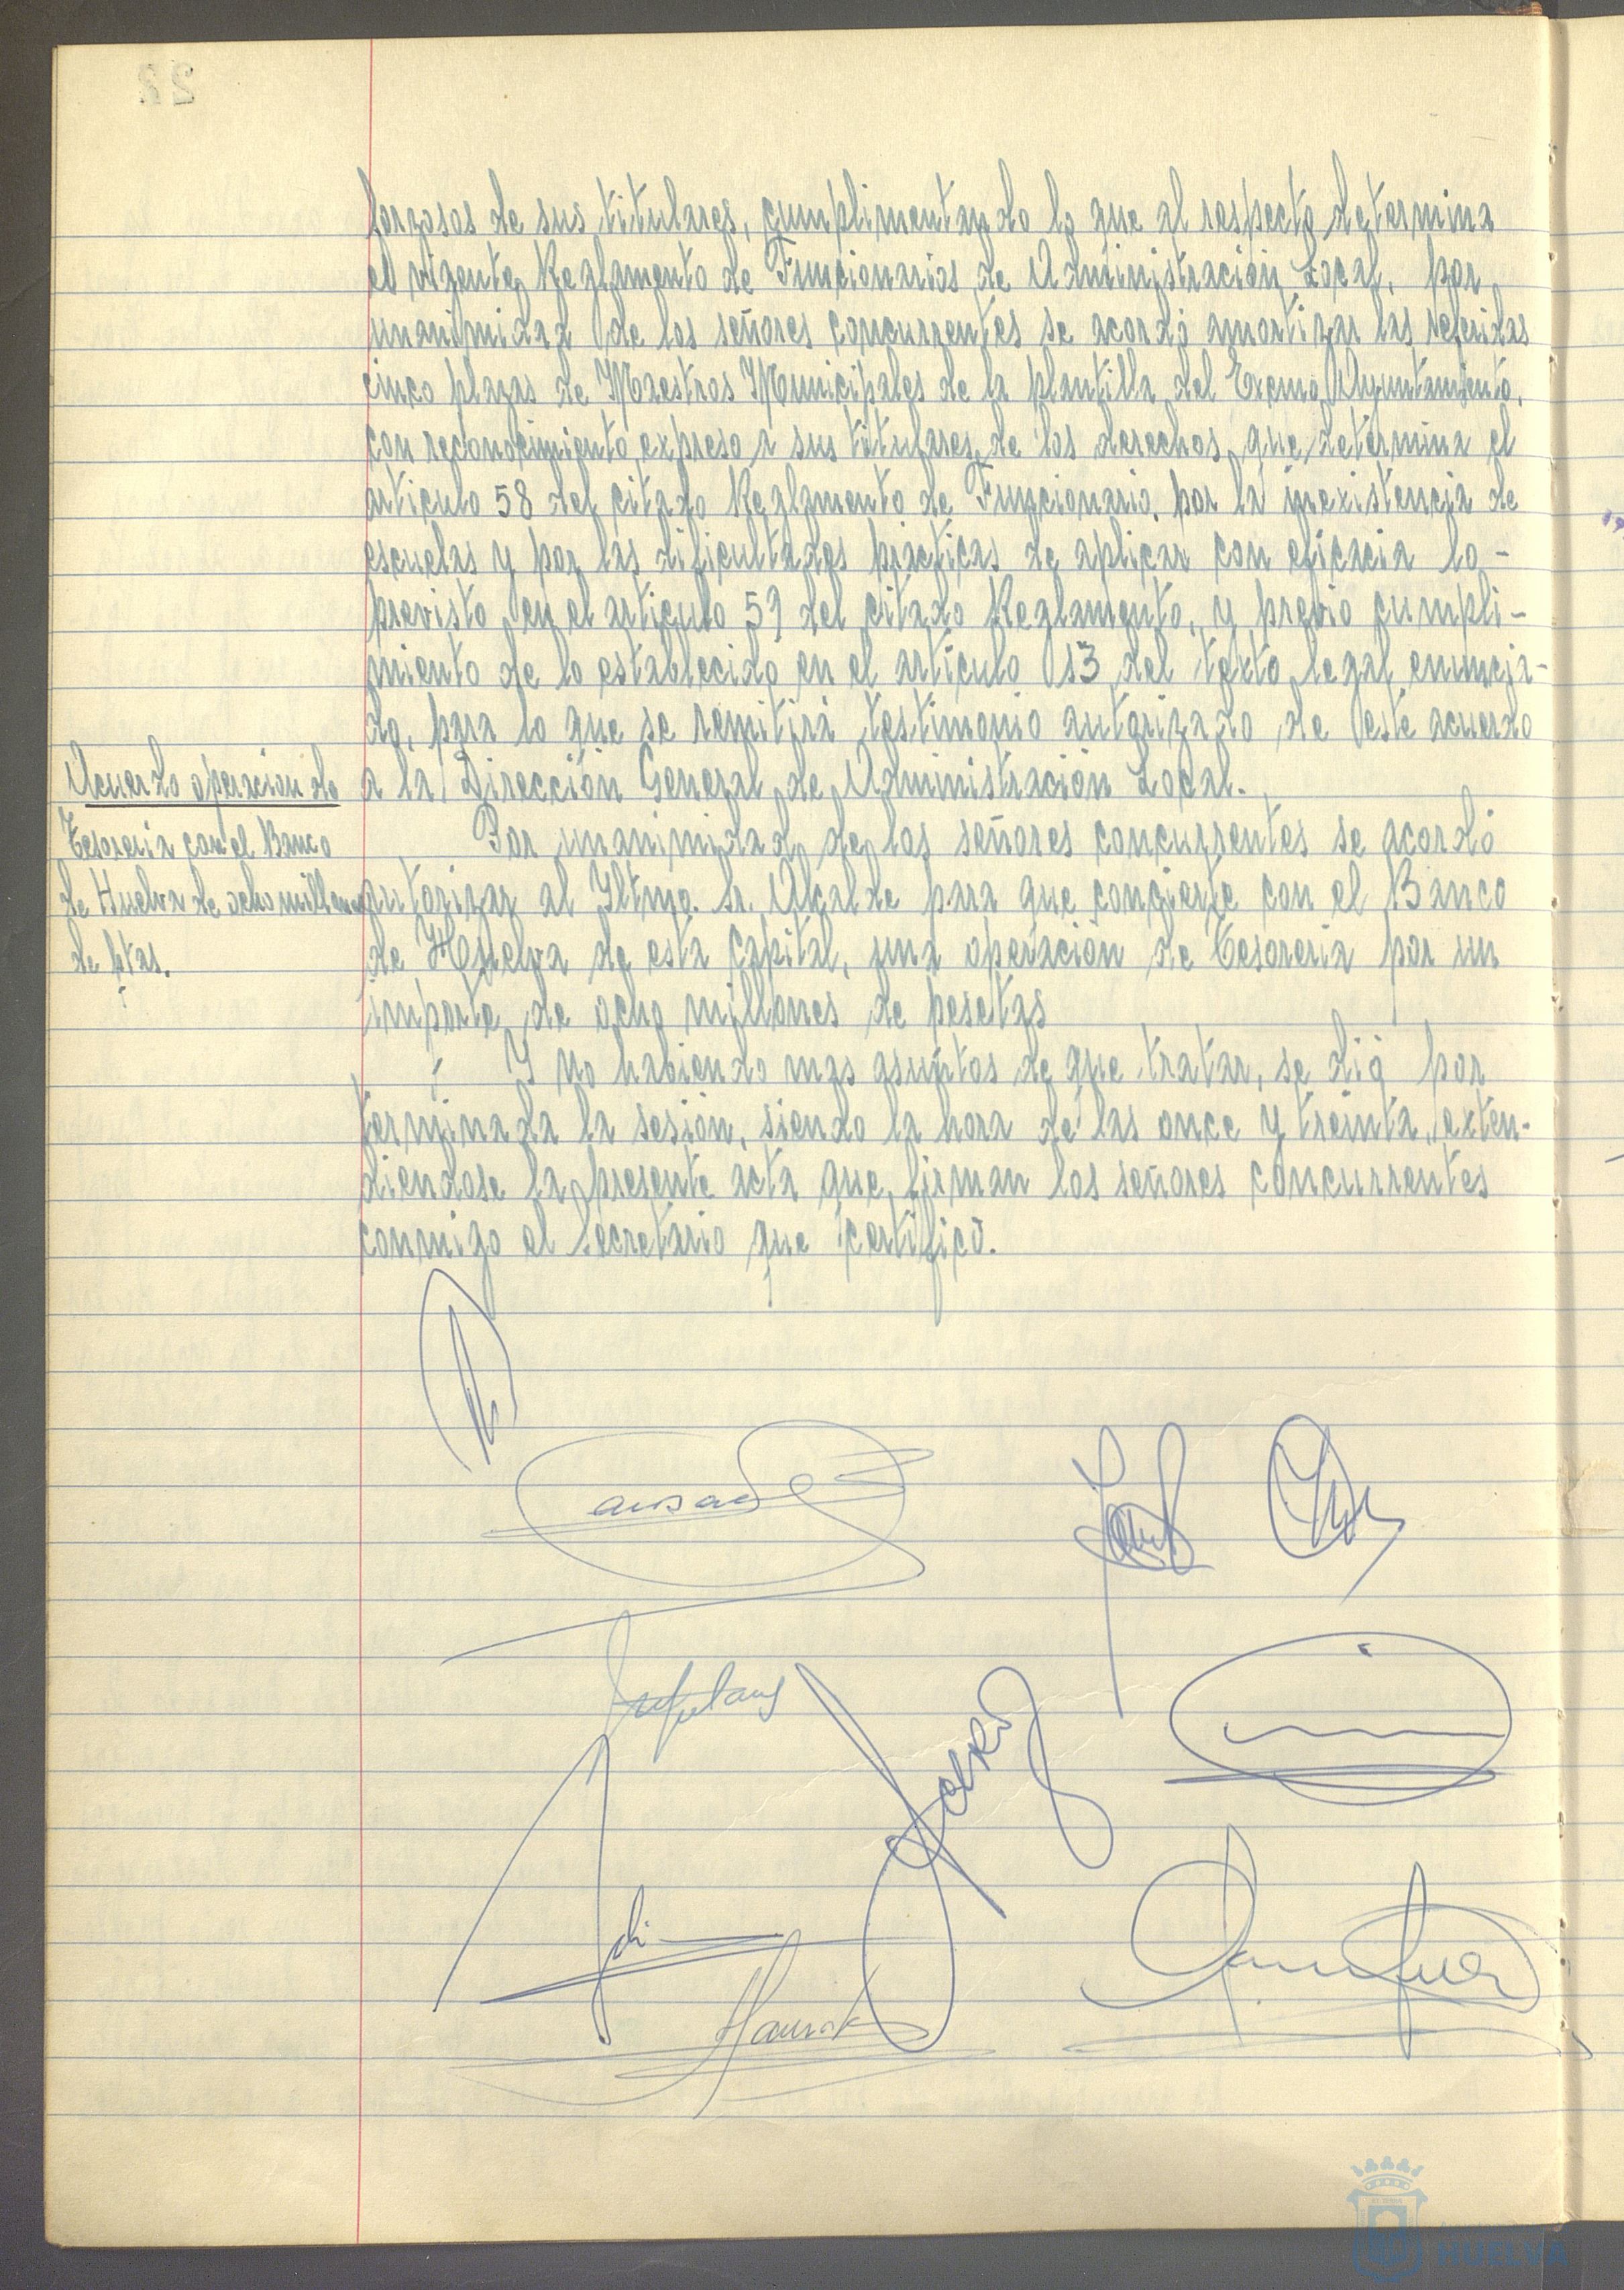 forzosos de sus titulares, cumplimentando lo que al respecto determina
el vigente Reglamento de Funcionarios de Administración Local, por
unanimidad de los señores concurrentes se acordó amortizar las referidas
cinco plazas de Maestros Municipales de la plantilla del Excmo Ayuntamiento,
con reconocimiento expreso a sus titulares de los derechos que determina el
artículo 58 del citado Reglamento de Funcionario, por la inexistencia de
escuelas y por las dificultades prácticas de aplicar con eficacia lo-
previsto en el artículo 59 del citado Reglamento, y previo cumpli-
miento de lo establecido en el artículo 13 del texto legal enuncia-
do, para lo que se remitirá testimonio autorizado de este acuerdo
a la Dirección General de Administración Local.
Acuerdo operacion de
Tesoreria con el Banco
de Huelva de ocho millones
de ptas.
Por unanimidad de los señores concurrentes se acordó
autorizar al Iltmo. Sr. Alcalde para que concierte con el Banco
de Huelva de esta Capital, una operación de Tesoreria por un
importe de ocho millones de pesetas
Y no habiendo mas asuntos de que tratar, se dió por
terminada la sesión, siendo la hora de las once y treinta, exten-
diendose la presente acta que firman los señores concurrentes
conmigo el Secretario que certifico.
HUELVA